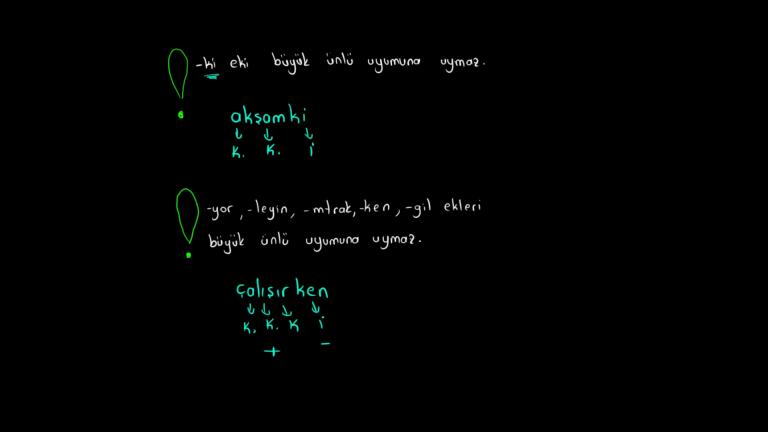 -ki eki büyük ünlü uyumuna uymaz.
akşamki
K. K. İ
-yor, -leyin, -mtrak, -ken, -gil ekleri
büyük ünlü uyumuna uymaz.
çalışırken
K. K. K İ
+ -